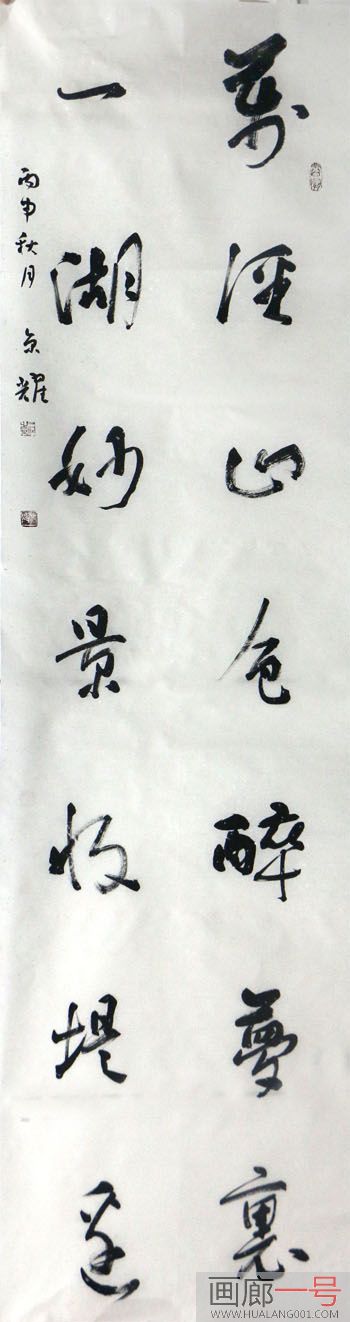 萬徑山色醉夢裏
一湖妙景收堤邊
丙申秋月 京耀
画廊一号
WWW.HUALANG001.COM